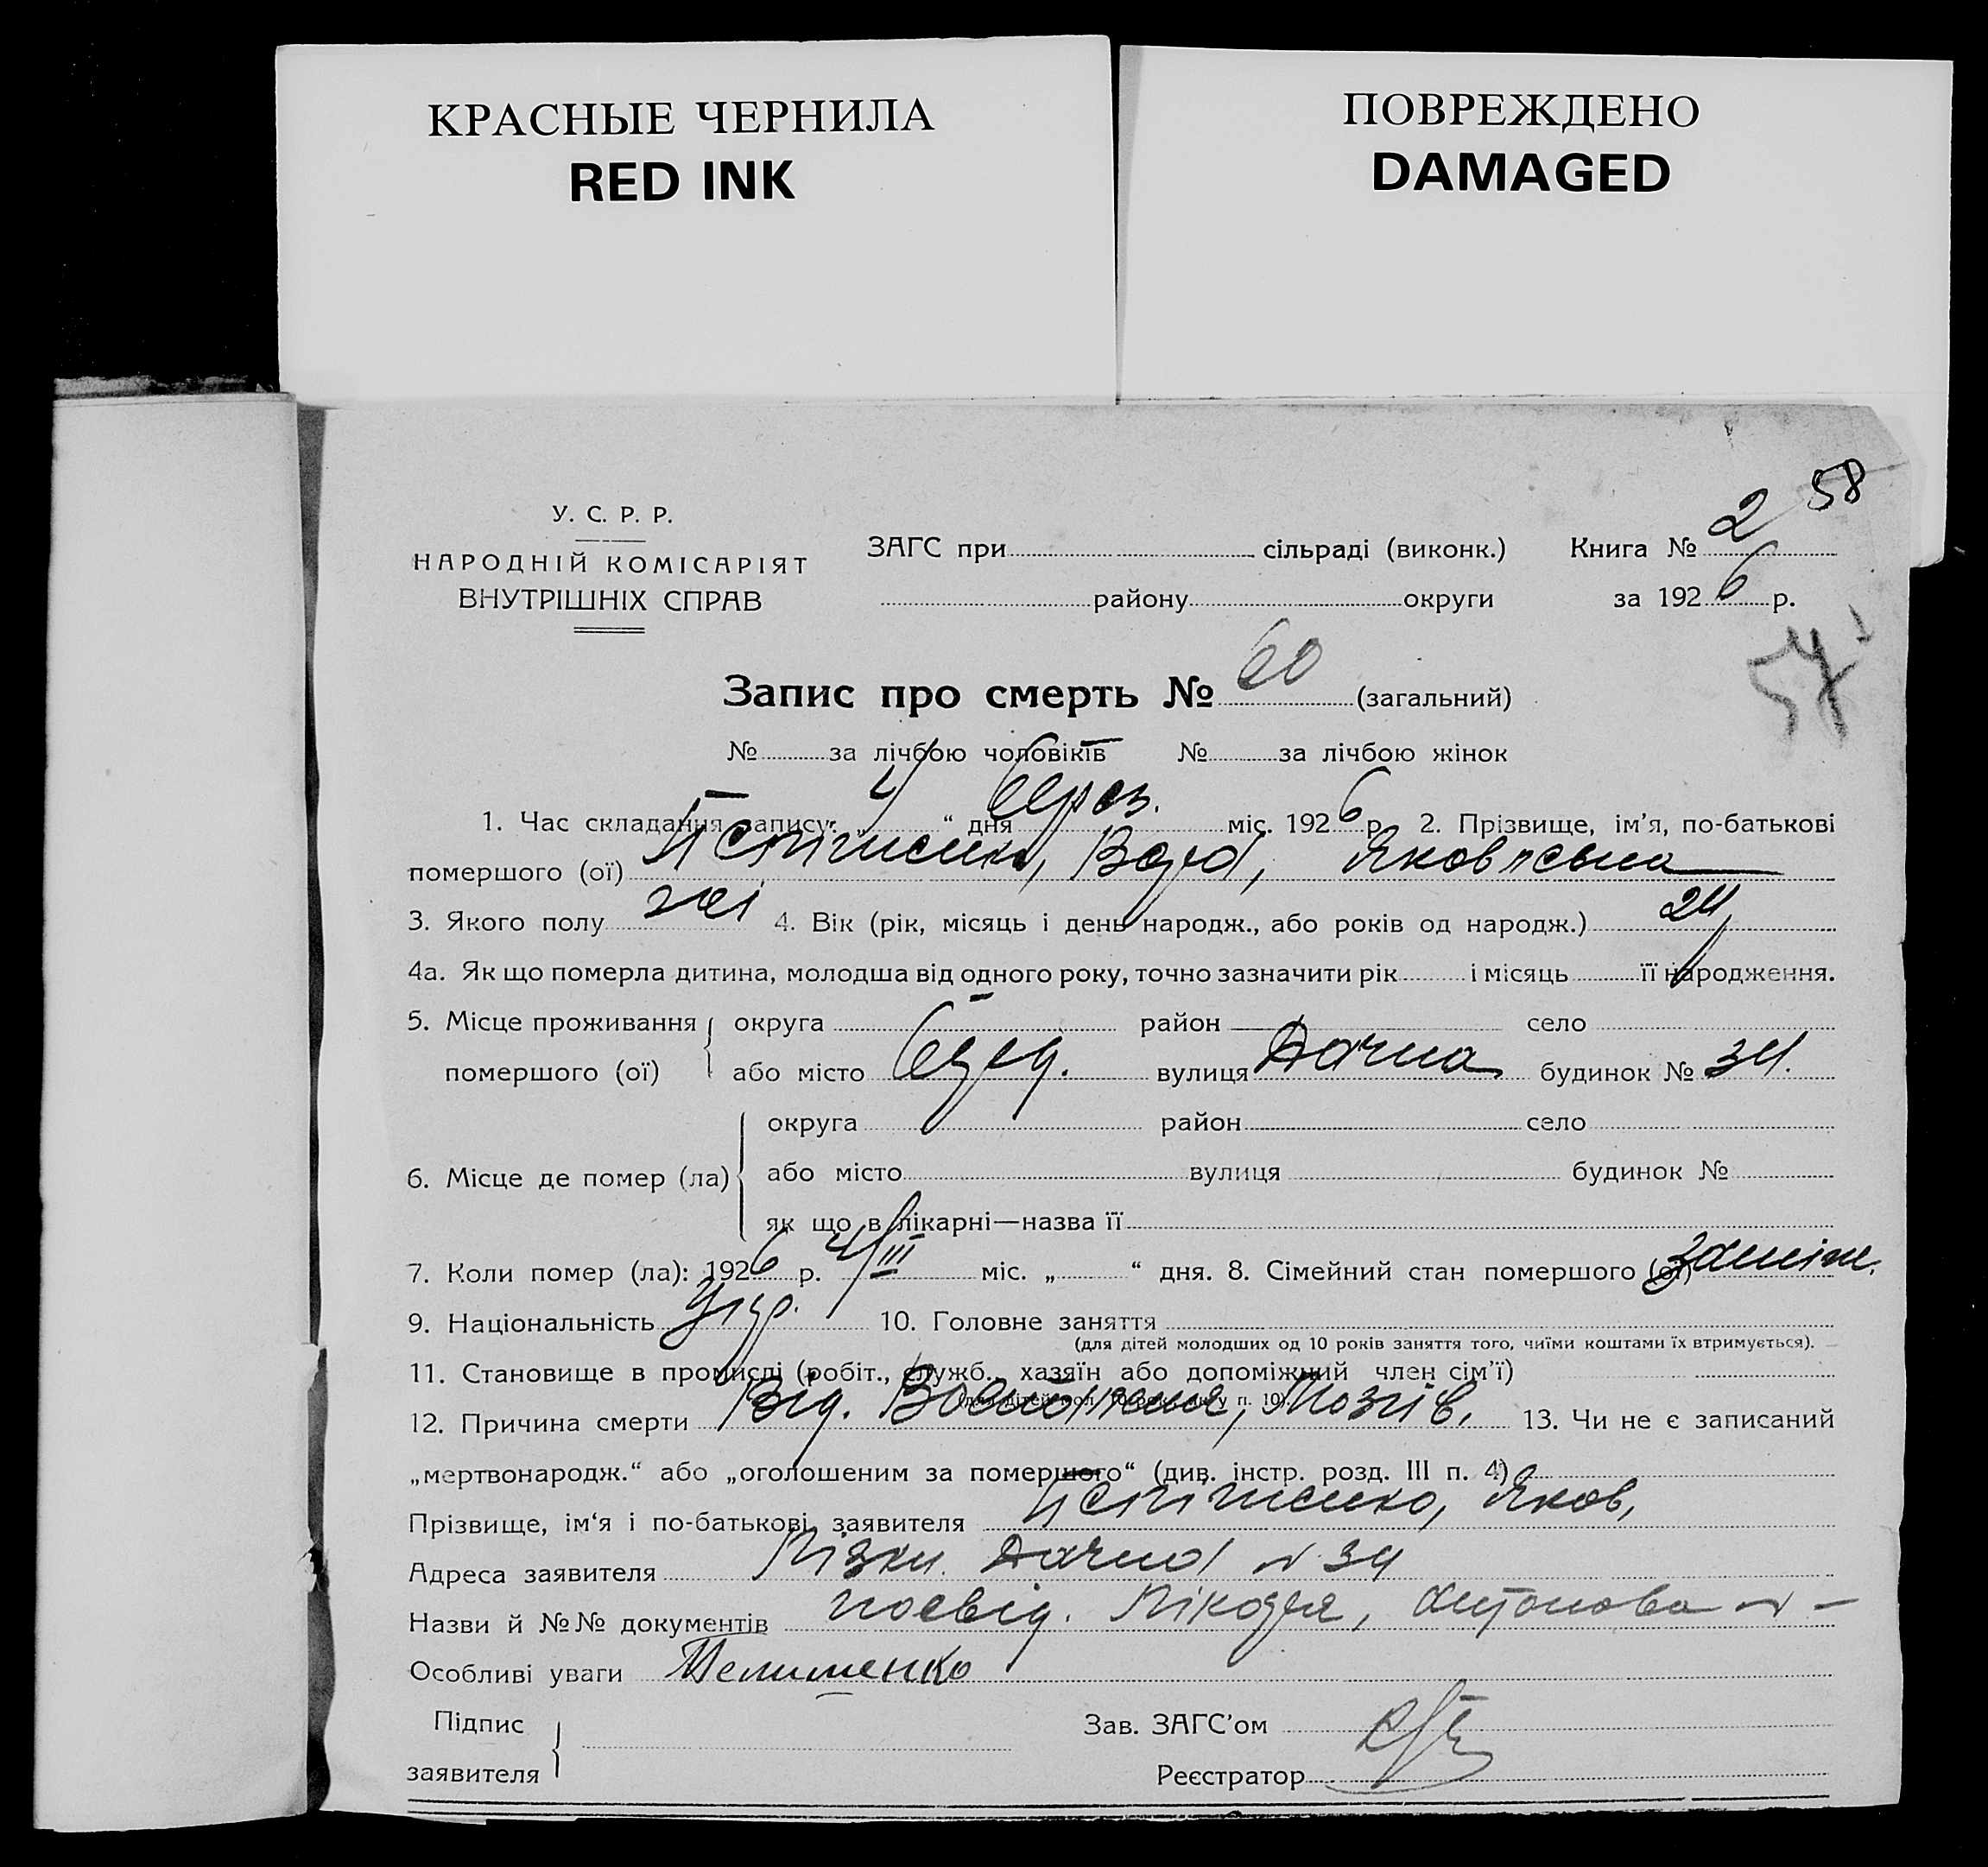 КРАСНЫЕ ЧЕРНИЛА
RED INK
ПОВРЕЖДЕНО
DAMAGED
58
У. С. Р. Р.
НАРОДНІЙ КОМІСАРІЯТ
ВНУТРІШНІХ СПРАВ
ЗАГС при сільраді (виконк.) Книга № 2
району округи за 1926 р.
57
Запис про смерть № 60 (загальний)
№ за лічбою чоловіків № за лічбою жінок
1. Час складання запису: „4“ дня берез. міс. 1926 р. 2. Прізвище, ім’я, по-батькові
помершого (ої) Яковлевна
3. Якого полу жі 4. Вік (рік, місяць і день народж., або років од народж.) 24
4а. Як що померла дитина, молодша від одного року, точно зазначити рік і місяць її народження.
5. Місце проживання округа район село
помершого (ої) або місто вулиця Дачна будинок № 34.
округа район село
6. Місце де помер (ла) або місто вулиця будинок №
як що в лікарні—назва її
7. Коли помер (ла): 1926 р. 4/III міс. „ “ дня. 8. Сімейний стан помершого (ої) заміж.
9. Національність Укр. 10. Головне заняття
(для дітей молодших од 10 років заняття того, чиїми коштами їх втримується).
11. Становище в промислі (робіт., служб., хазяїн або допоміжний член сім’ї)
12. Причина смерти Від. Мозгів. 13. Чи не є записаний
„мертвонародж.“ або „оголошеним за помершого“ (див. інстр. розд. III п. 4)
Прізвище, ім‘я і по-батькові заявителя Яков,
Адреса заявителя Дачна № 34
Назви й №№ документів посвід. Лікаря,
Особливі уваги
Підпис
заявителя
Зав. ЗАГС’ом
Реєстратор